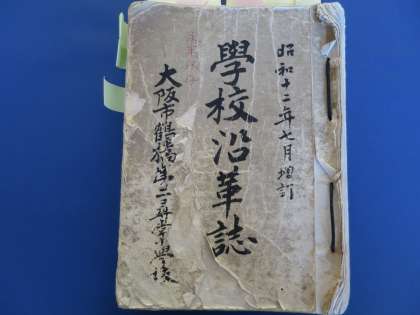 昭和十二年七月増訂
學校沿革誌
大阪市鶴橋第二尋常小學校